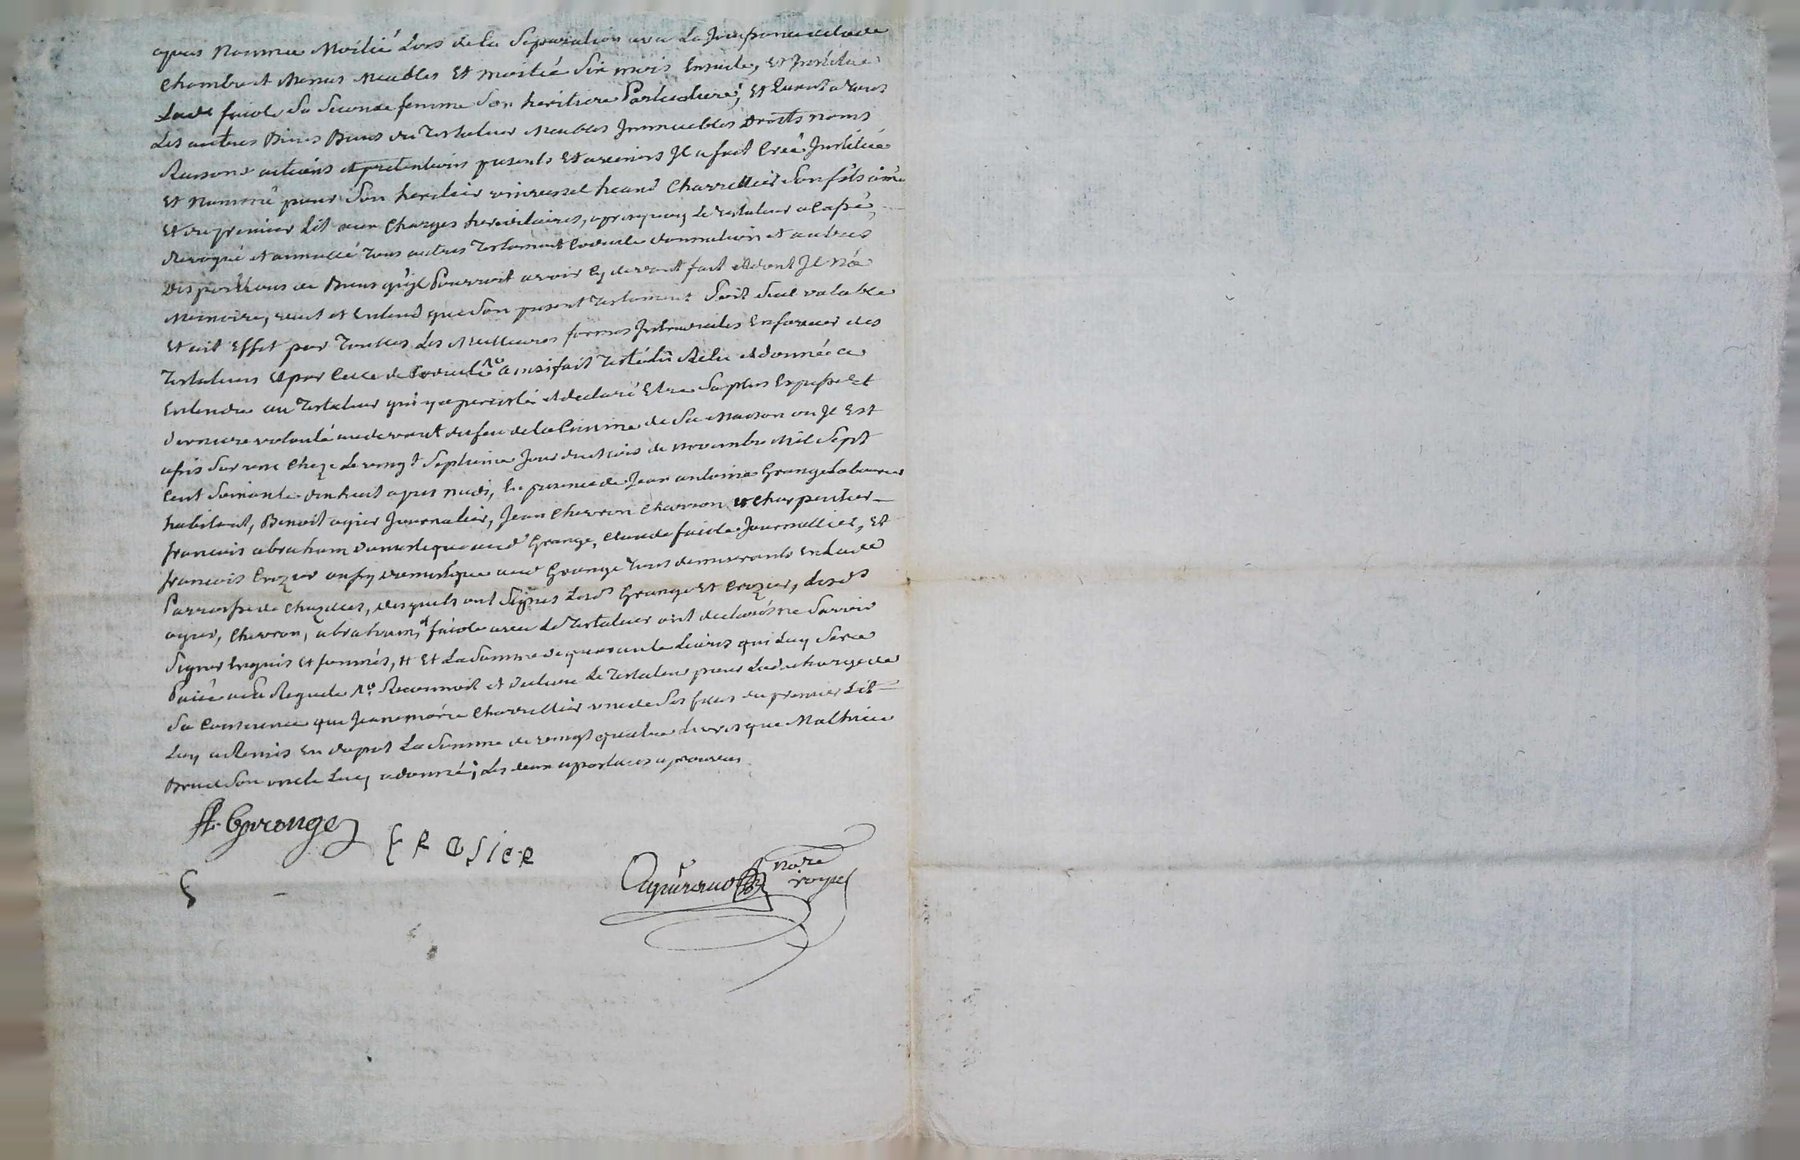 apres Nommée Moitié Lors de la Separation avec La Jouissance de lade
Chambre et Menus Meubles Et moitié Six mois Ensuite, Et Jnstitue
Lade faiole Sa Seconde femme Son heritiere Particuliere, Et Quant a tous
Les autres Biens du Testateur Meubles Jmmeubles Droits noms
Raisons actions et pretentions presents Et avenirs Jl a fait Créé Jnstitué
Et Nommé pour Son heritier universel Charvillier Son fils ainé
Et du premier Lit aux Charges hereditaires, apres quoy Le testateur a Cassé,
Revoqué et annullé Tous autres Testament Codicile donnations et autres
Dispositions de Biens qu'il Pourroit avoir Cy devant fait et dont Jl n'a
Memoire, veut et Entend que Son present Testament Soit Seul valable
Et ait Effet par Toutes Les Meilleures formes En faveur des
Testateurs Et par Celle de Codicile ainsi fait Testé Lû Relu et donnée a
Entendre au Testateur qui y a persisté et declaré Etre Sa plus Expresse Et
Derniere volonté au devant du feu de la Cuisine de Sa Maison ou Jl Est
assis Sur une Cheze Le vingt Septieme Jour du mois de novembre Mil Sept
Cent Soixante dixhuit apres midi, En presence de Jean antoine Grange Laboureur
habitant, Benoit agier Journalier, Jean Chevron Charron et Charpentier
francois abraham domestique aud Grange, Claude faiole Journallier, Et
francois Crozier domestique aud Grange Tous demeurants En Lade
Parroisse de Chazelles, desquels ont Signés Lesds Grange Et Crozier, Lesds
agier, Chevron, abraham, et faiole avec Le Testateur ont declarés ne Savoir
Signer Enquis Et sommés, Et La Somme de quarante Livres qui Luy Sera
Payée a Sa Requete Reconnoit et declare Le Testateur pour La decharge de
Sa Conscience que Jeanne marie Charvillier une de Ses filles du premier Lit
Luy a Remis En depot La Somme de vingt quatre Livres que Mathieu
Son oncle Luy a donnée, Les deux apostilles approuvées
A. Grange
F CROSIER
nore
royal